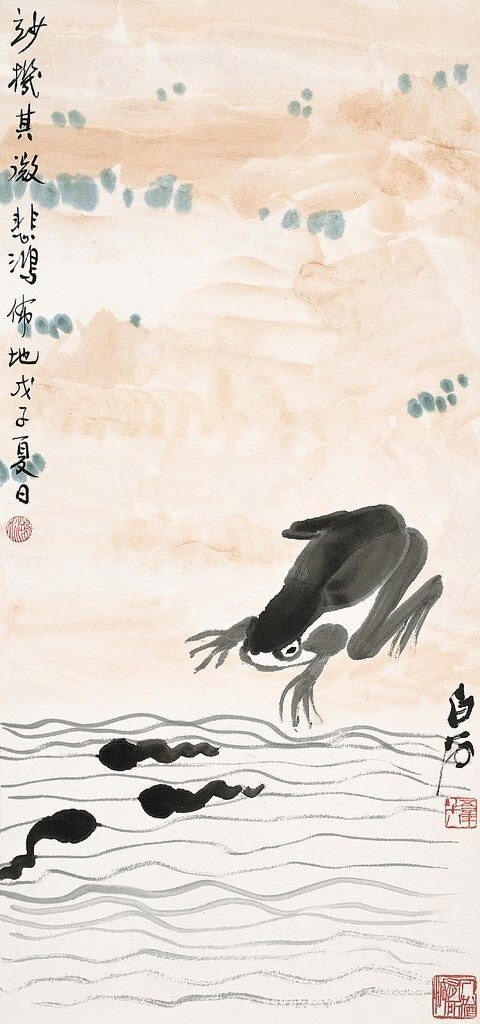 妙機其微悲鴻佈地戊子夏日
白石